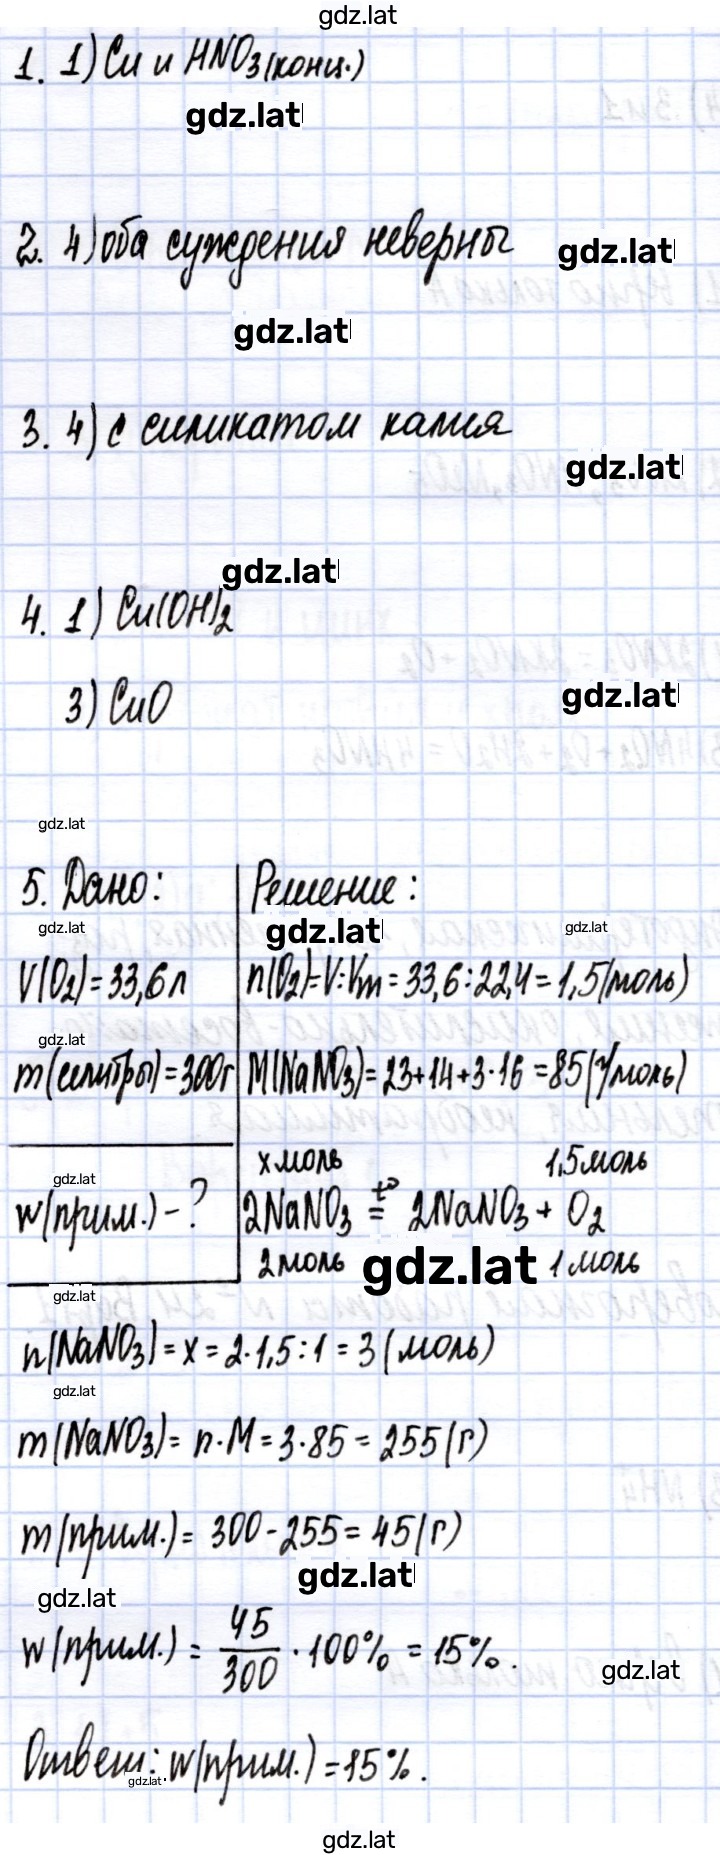 gdz.lat
1. 1) Cu и HNO3(конц.)
gdz.lat
2. 4) оба суждения неверны
gdz.lat
gdz.lat
3. 4) с силикатом калия
gdz.lat
gdz.lat
4. 1) Cu(OH)2
3) CuO
gdz.lat
gdz.lat
5. Дано:
Решение:
gdz.lat
gdz.lat
gdz.lat
V(O2) = 33,6 л
n(O2) = V : Vm = 33,6 : 22,4 = 1,5 (моль)
gdz.lat
m(селитры) = 300г
M(NaNO3) = 23+14+3·16 = 85 (г/моль)
gdz.lat
w(прим.) - ?
x моль 1,5 моль
2NaNO3 t° = 2NaNO3 + O2
2 моль gdz.lat 1 моль
gdz.lat
n(NaNO3) = x = 2·1,5 : 1 = 3 (моль)
gdz.lat
m(NaNO3) = n·M = 3·85 = 255 (г)
m(прим.) = 300 - 255 = 45 (г)
gdz.lat
gdz.lat
w(прим.) = 45/300 · 100% = 15%.
gdz.lat
Ответ: w(прим.) = 15%.
gdz.lat
gdz.lat